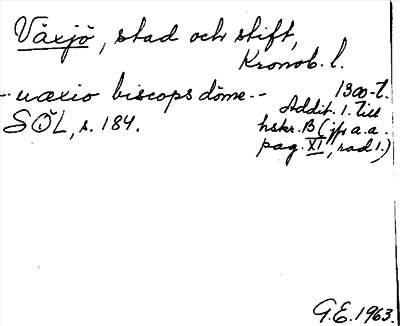 Växjö, stad och stift,
Kronob. l.
-- uæxio biscops döme --
1300-t.
Addit. 1. till
SÖL, s. 184.
hskr. B (jfr a.a.
pag. XI, rad 1.)
G.E. 1963.